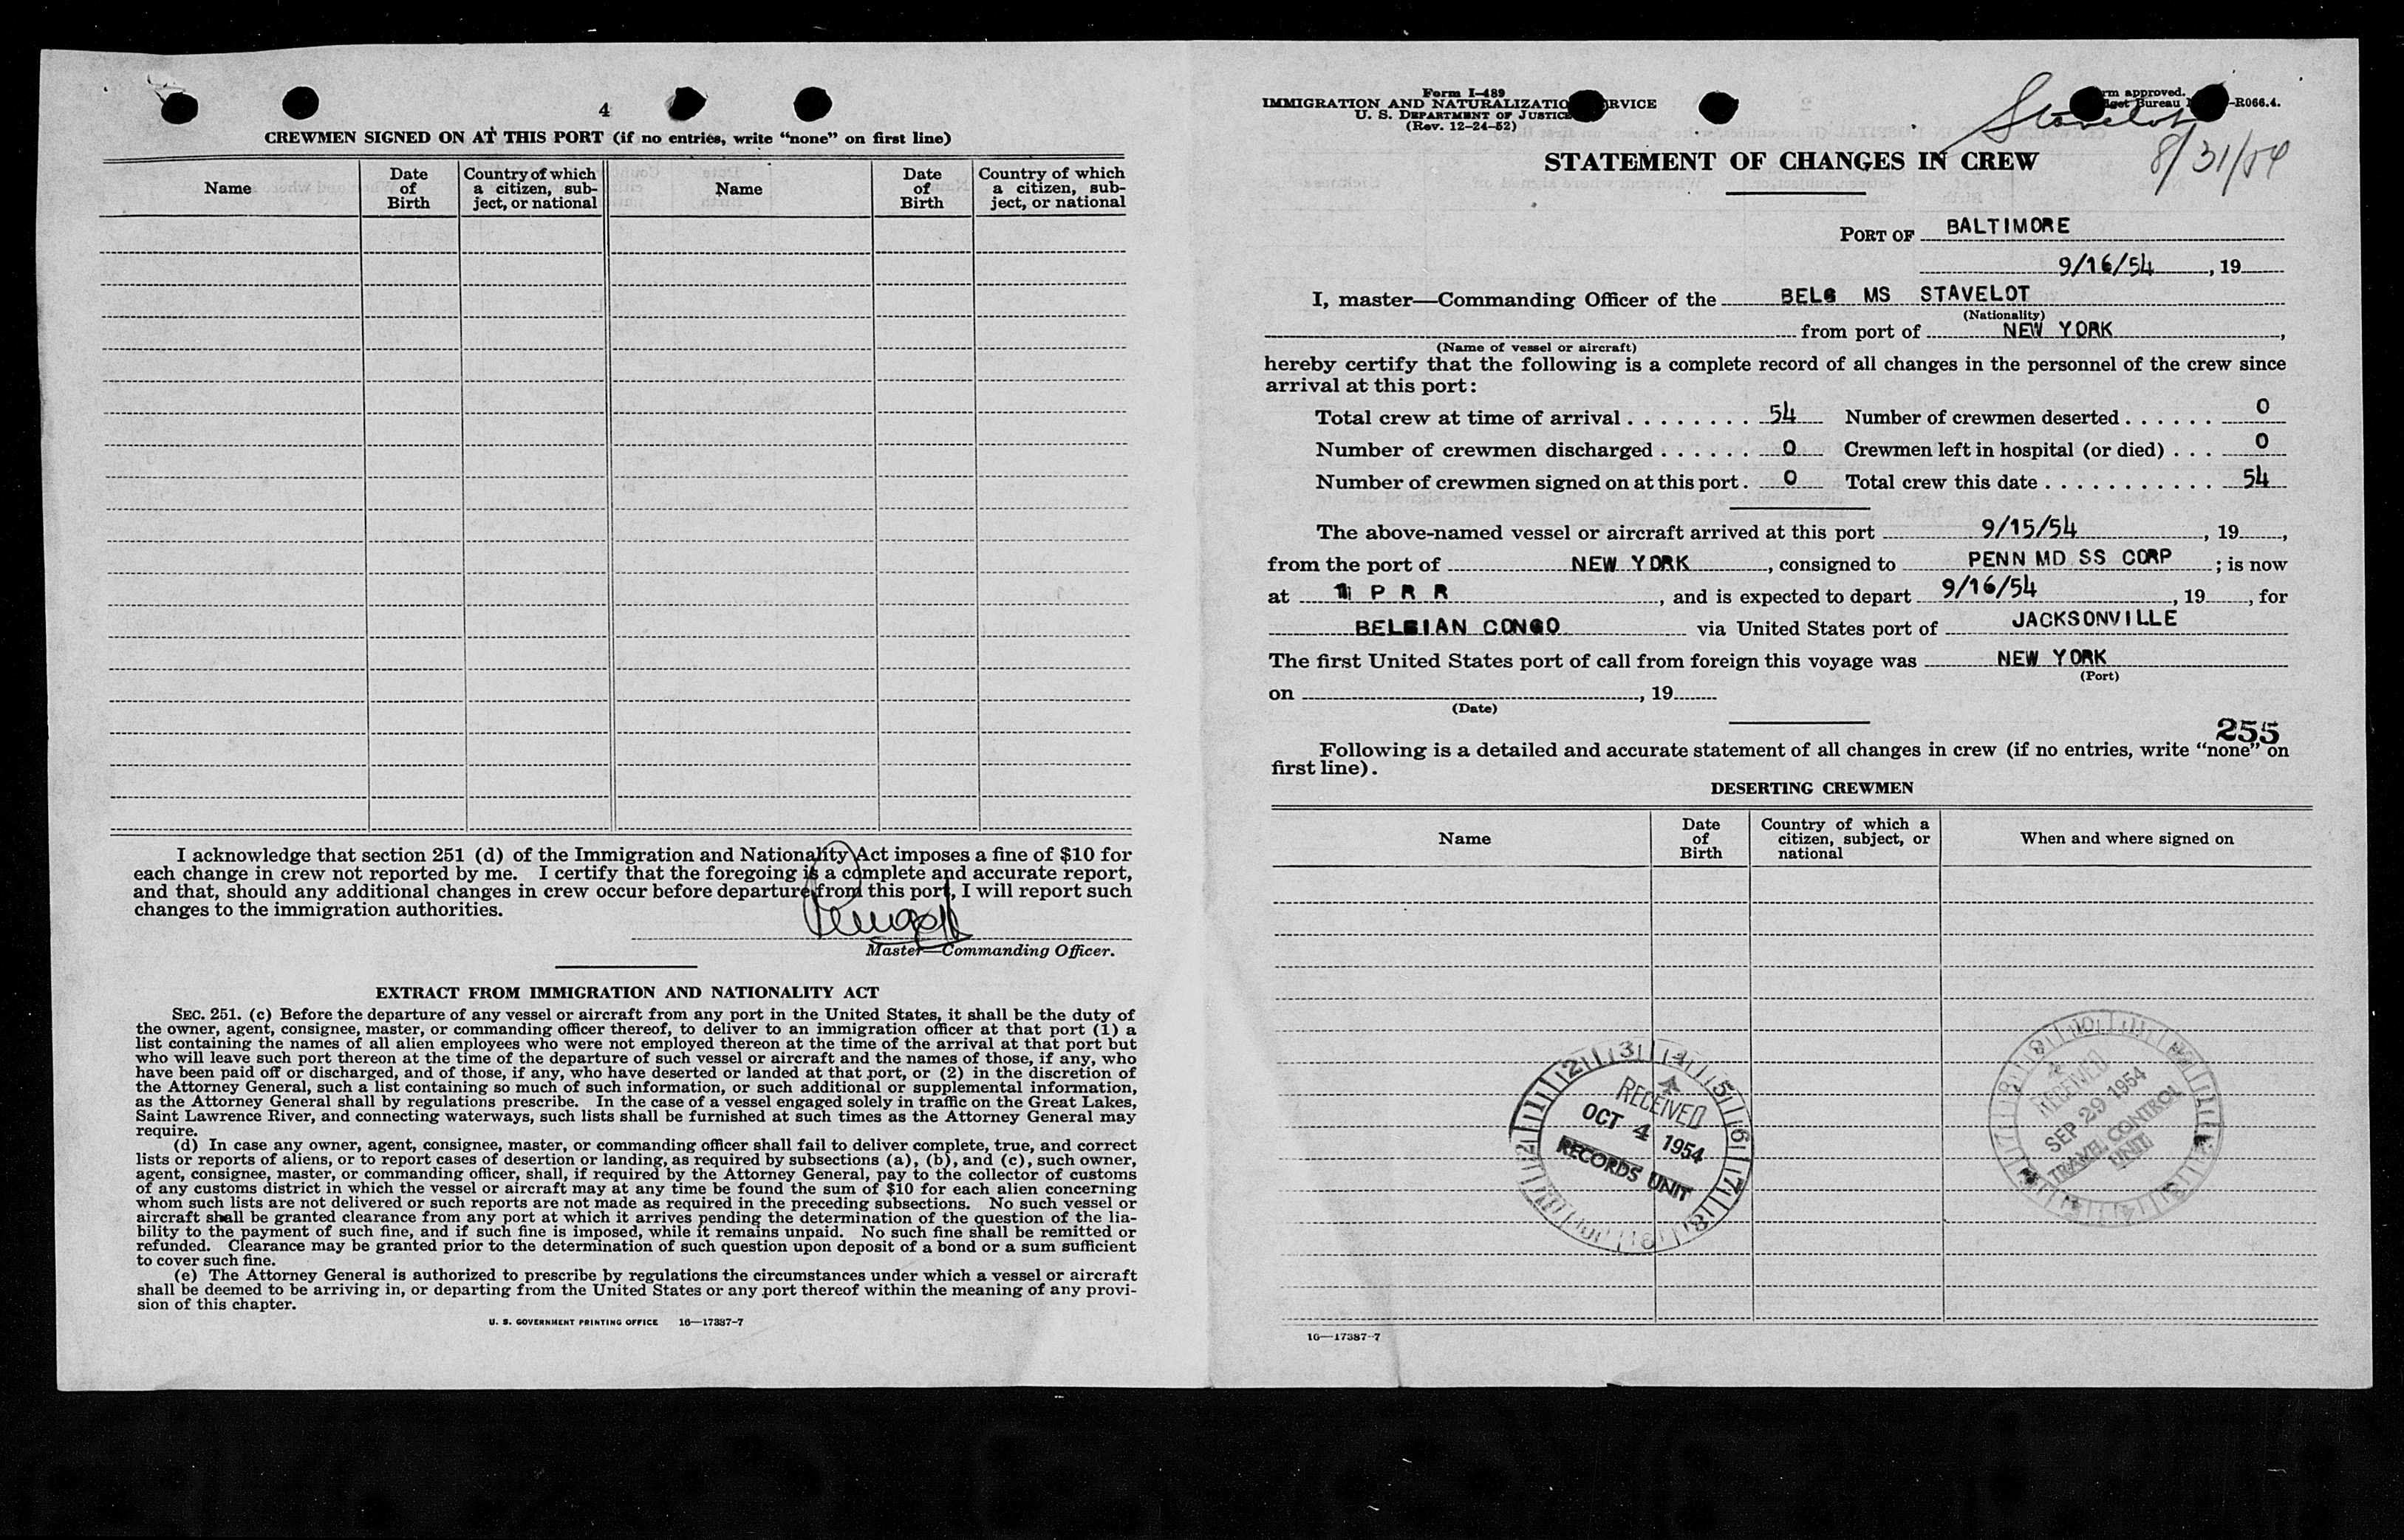 4
CREWMEN SIGNED ON AT THIS PORT (if no entries, write “none” on first line)
Name
Date of Birth
Country of which a citizen, sub-ject, or national
Name
Date of Birth
Country of which a citizen, sub-ject, or national
I acknowledge that section 251 (d) of the Immigration and Nationality Act imposes a fine of $10 for
each change in crew not reported by me. I certify that the foregoing is a complete and accurate report,
and that, should any additional changes in crew occur before departure from this port, I will report such
changes to the immigration authorities.
Master—Commanding Officer.
EXTRACT FROM IMMIGRATION AND NATIONALITY ACT
SEC. 251. (c) Before the departure of any vessel or aircraft from any port in the United States, it shall be the duty of
the owner, agent, consignee, master, or commanding officer thereof, to deliver to an immigration officer at that port (1) a
list containing the names of all alien employees who were not employed thereon at the time of the arrival at that port but
who will leave such port thereon at the time of the departure of such vessel or aircraft and the names of those, if any, who
have been paid off or discharged, and of those, if any, who have deserted or landed at that port, or (2) in the discretion of
the Attorney General, such a list containing so much of such information, or such additional or supplemental information,
as the Attorney General shall by regulations prescribe. In the case of a vessel engaged solely in traffic on the Great Lakes,
Saint Lawrence River, and connecting waterways, such lists shall be furnished at such times as the Attorney General may
require.
(d) In case any owner, agent, consignee, master, or commanding officer shall fail to deliver complete, true, and correct
lists or reports of aliens, or to report cases of desertion or landing, as required by subsections (a), (b), and (c), such owner,
agent, consignee, master, or commanding officer, shall, if required by the Attorney General, pay to the collector of customs
of any customs district in which the vessel or aircraft may at any time be found the sum of $10 for each alien concerning
whom such lists are not delivered or such reports are not made as required in the preceding subsections. No such vessel or
aircraft shall be granted clearance from any port at which it arrives pending the determination of the question of the lia-
bility to the payment of such fine, and if such fine is imposed, while it remains unpaid. No such fine shall be remitted or
refunded. Clearance may be granted prior to the determination of such question upon deposit of a bond or a sum sufficient
to cover such fine.
(e) The Attorney General is authorized to prescribe by regulations the circumstances under which a vessel or aircraft
shall be deemed to be arriving in, or departing from the United States or any port thereof within the meaning of any provi-
sion of this chapter.
U. S. GOVERNMENT PRINTING OFFICE 16—17387-7
Form I-489
IMMIGRATION AND NATURALIZATIO RVICE
U. S. DEPARTMENT OF JUSTICE
(Rev. 12-24-52)
rm approved.
get Bureau -R066.4.
Stavelot
8/31/54
STATEMENT OF CHANGES IN CREW
PORT OF BALTIMORE
9/16/54, 19
I, master—Commanding Officer of the BELG MS STAVELOT
(Nationality)
from port of NEW YORK,
(Name of vessel or aircraft)
hereby certify that the following is a complete record of all changes in the personnel of the crew since
arrival at this port:
Total crew at time of arrival . . . . . . . . 54 Number of crewmen deserted . . . . . . 0
Number of crewmen discharged . . . . . . 0 Crewmen left in hospital (or died) . . . 0
Number of crewmen signed on at this port . 0 Total crew this date . . . . . . . . . . . . 54
The above-named vessel or aircraft arrived at this port 9/15/54, 19,
from the port of NEW YORK, consigned to PENN MD SS CORP; is now
at 1 P R R, and is expected to depart 9/16/54, 19, for
BELGIAN CONGO via United States port of JACKSONVILLE
The first United States port of call from foreign this voyage was NEW YORK
(Port)
on , 19
(Date)
255
Following is a detailed and accurate statement of all changes in crew (if no entries, write “none” on
first line).
DESERTING CREWMEN
Name
Date of Birth
Country of which a citizen, subject, or national
When and where signed on
RECEIVED
OCT 4 1954
RECORDS UNIT
RECEIVED
SEP 29 1954
TRAVEL CONTROL
UNIT
16—17387-7